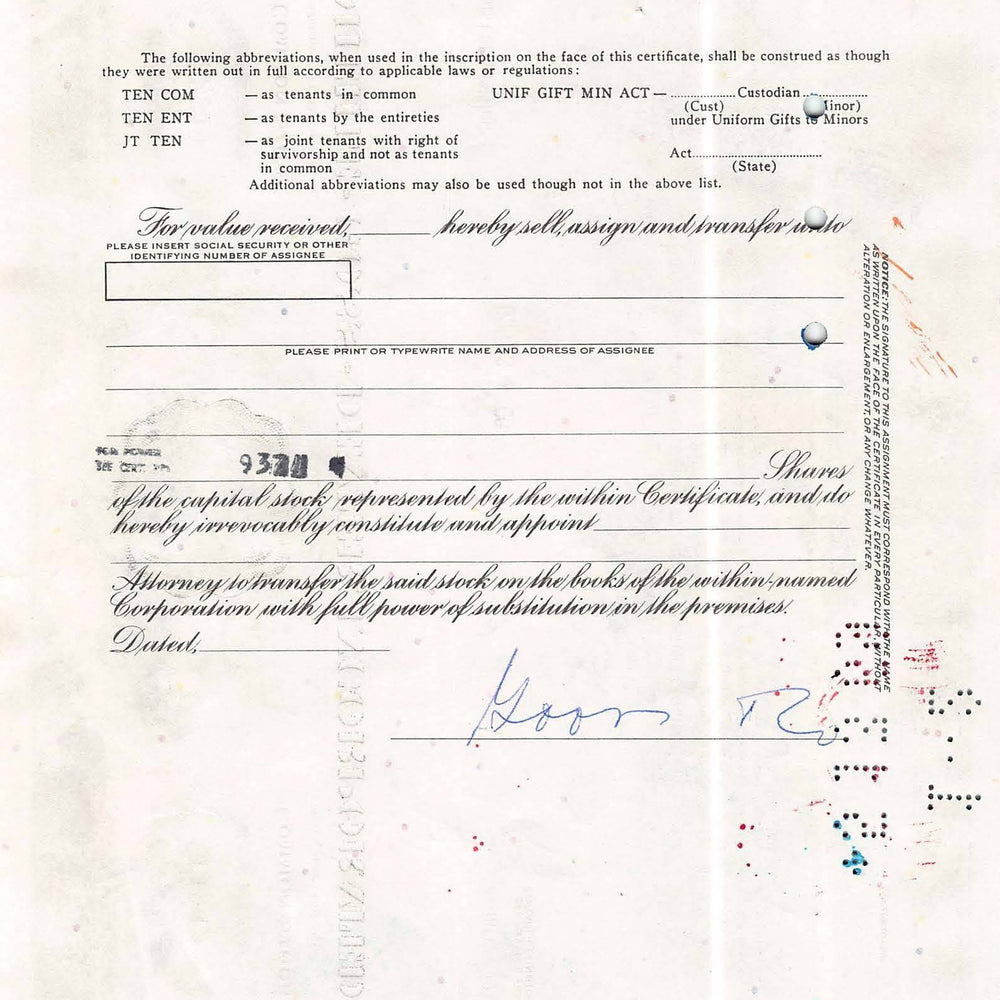 The following abbreviations, when used in the inscription on the face of this certificate, shall be construed as though
they were written out in full according to applicable laws or regulations:
TEN COM — as tenants in common
TEN ENT — as tenants by the entireties
JT TEN — as joint tenants with right of
survivorship and not as tenants
in common
UNIF GIFT MIN ACT — .................. Custodian ..................
(Cust) Minor)
under Uniform Gifts to Minors
Act....................................
(State)
Additional abbreviations may also be used though not in the above list.
For value received, ________ hereby sell, assign and transfer unto
PLEASE INSERT SOCIAL SECURITY OR OTHER
IDENTIFYING NUMBER OF ASSIGNEE
PLEASE PRINT OR TYPEWRITE NAME AND ADDRESS OF ASSIGNEE
FOR POWER
SEE CERT.
Shares
of the capital stock represented by the within Certificate, and do
hereby irrevocably constitute and appoint
Attorney to transfer the said stock on the books of the within-named
Corporation with full power of substitution in the premises.
Dated,
NOTICE: THE SIGNATURE TO THIS ASSIGNMENT MUST CORRESPOND WITH THE NAME
AS WRITTEN UPON THE FACE OF THE CERTIFICATE IN EVERY PARTICULAR, WITHOUT
ALTERATION OR ENLARGEMENT, OR ANY CHANGE WHATEVER.